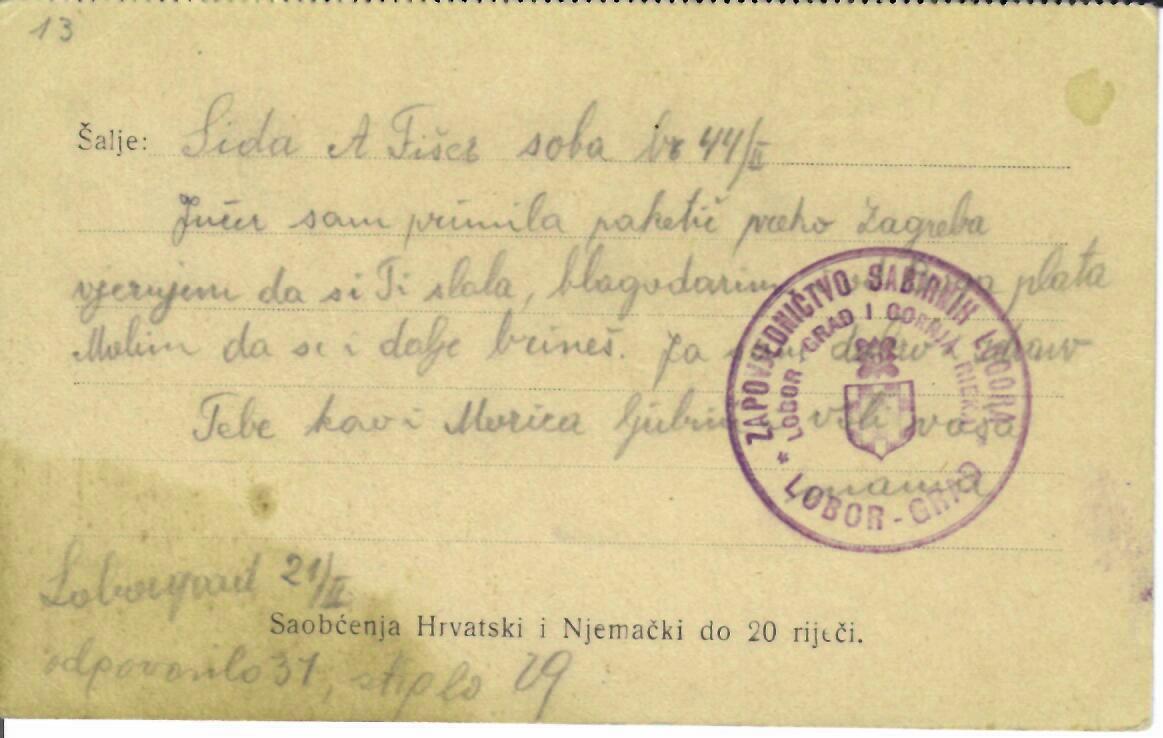 13
Šalje: Sida A Fišer soba br 44/II
Jučer sam primila paketić preko Zagreba
vjerujem da si Ti slala, blagodarim plata
Molim da se i dalje brineš. Ja dobro i zdravo
Tebe kao i Morica ljubi voli vaša
mama
ZAPOVJEDNIČTVO SABIRNIH LOGORA
LOBOR-GRAD I GORNJA RIEKA
* LOBOR-GRAD *
Loborgrad 21/II
Saobćenja Hrvatski i Njemački do 20 riječi.
odgovorilo 31, stiglo 29